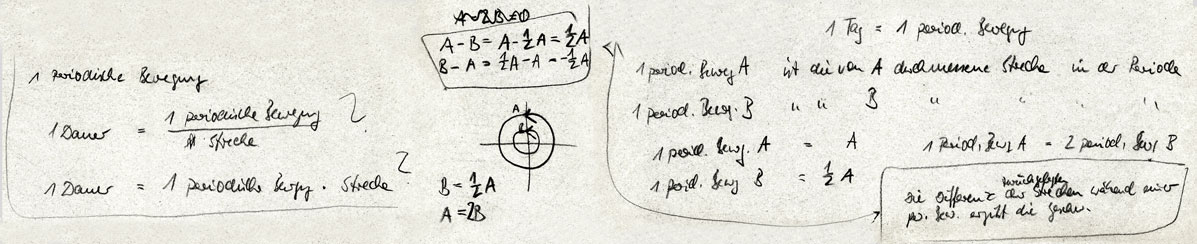 1 periodische Bewegung
1 Dauer = 1 periodische Bewegung / Strecke ?
1 Dauer = 1 periodische Bewgg. Strecke ?
A-2B=0
A-B = A-½A = ½A
B-A = ½A-A = -½A
A
B
B = ½A
A = 2B
1 Tag = 1 period. Bewegung
1 period. Beweg A ist die von A durchmessene Strecke in der Periode
1 period. Bewg. B " " B " " " "
1 period. Bewg. A = A
1 period. Bewg B = ½A
1 Period. Bewg A = 2 period. Bewg B
Die Differenz der zurückgelegten Strecken während einer
per. Bew. ergibt die